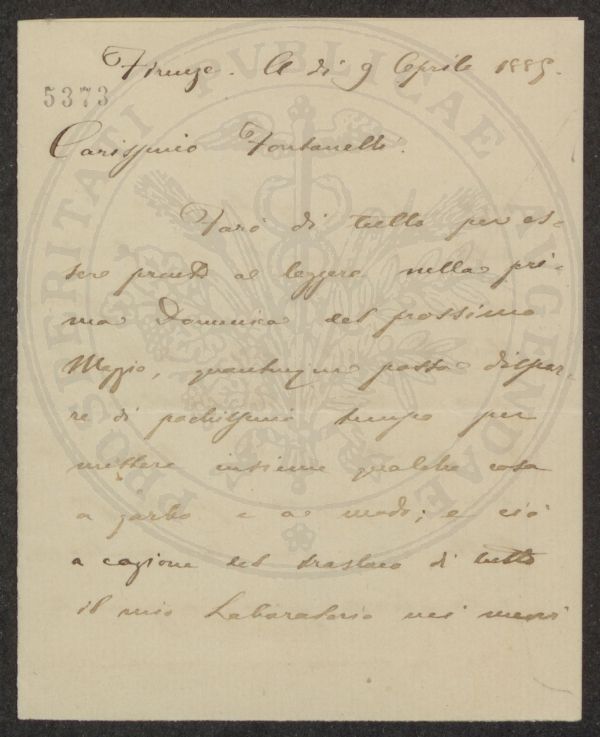 Firenze. A dì 9 Aprile 1885.
5373
Carissimo Fontanelli.
Farò di tutto per es-
sere pronto a leggere nella pri-
ma Domenica del prossimo
Maggio, quantunque possa dispor-
re di pochissimo tempo per
mettere insieme qualche cosa
a garbo e a modo; e ciò
a cagione del trasloco di tutto
il mio Laboratorio nei nuovi
PROSPERITATI PVBLICAE AVGENDAE